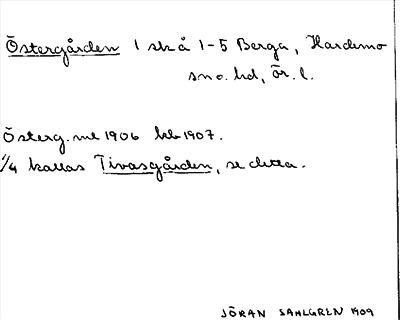 Östergården 1 sk å 1-5 Berga, Hardemo
sn o. hd, Ör. l.
Österg. mt 1906 kb 1907.
1/4 kallas Tivasgården, se detta.
JÖRAN SAHLGREN 1909